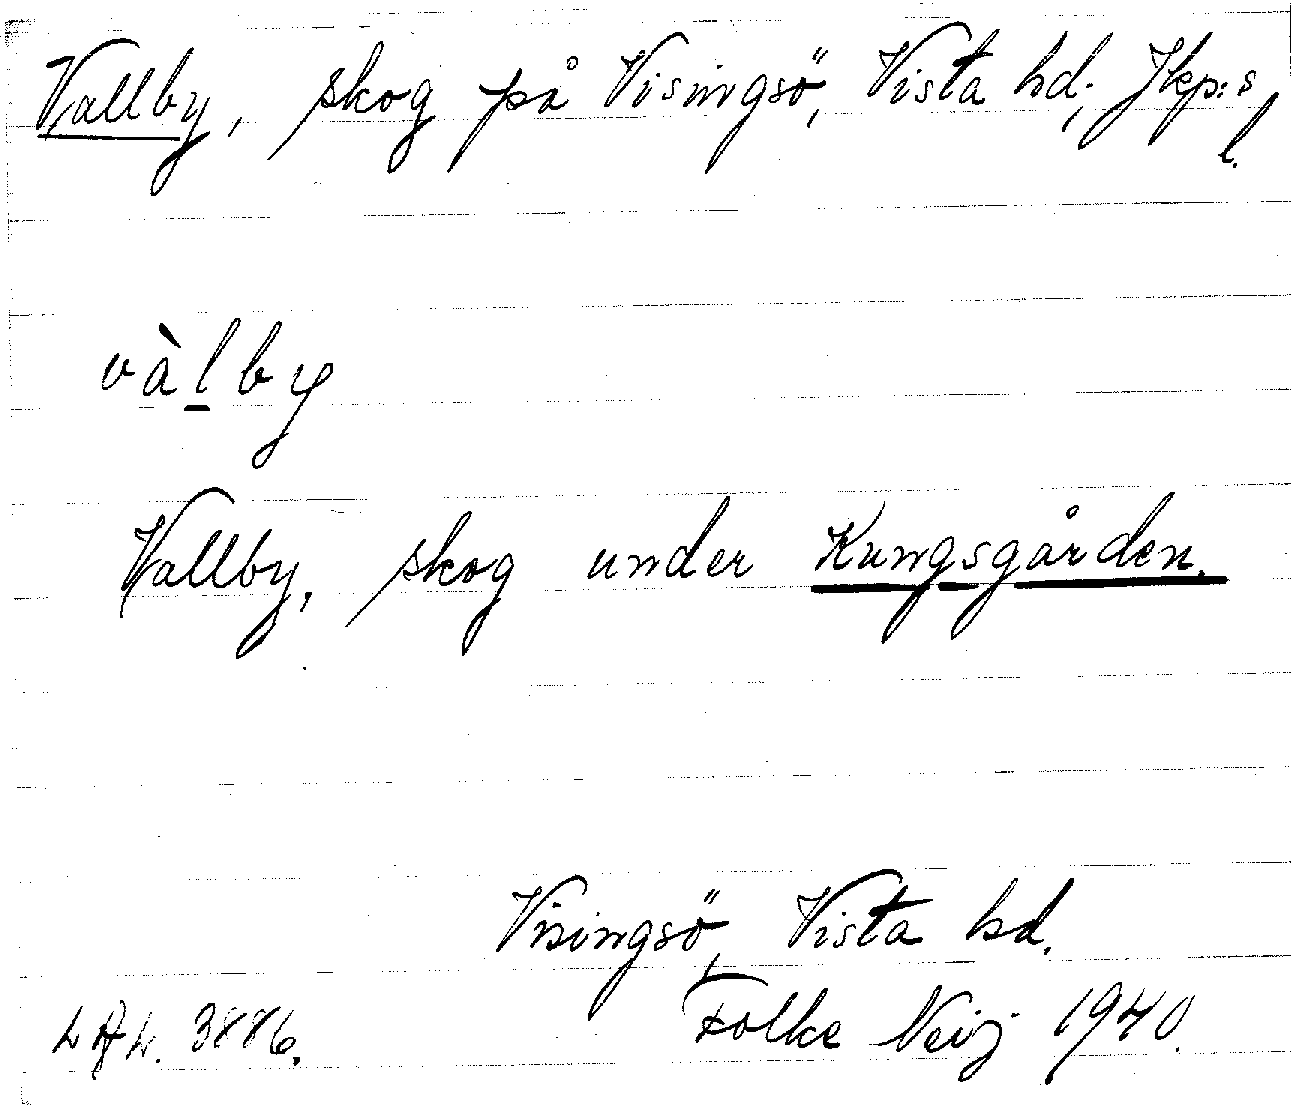 Vallby, skog på Visingsö, Vista hd; Jkp:s
l.
vàlby
Vallby, skog under Kungsgården.
Visingsö, Vista hd.
3886. Folke Neij 1940.